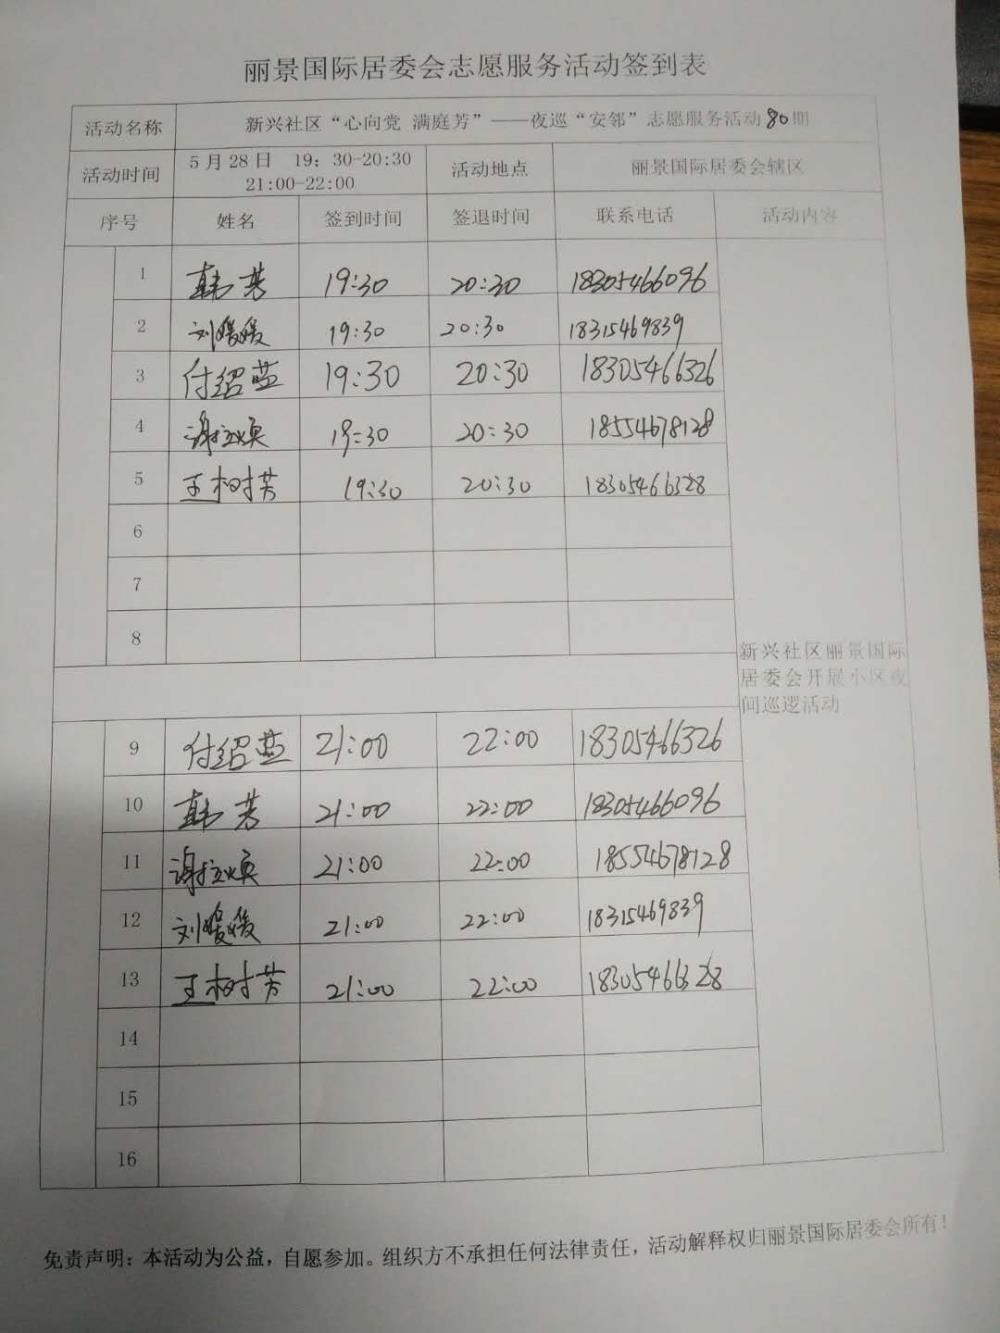 丽景国际居委会志愿服务活动签到表
活动名称 新兴社区“心向党 满庭芳”——夜巡“安邻”志愿服务活动80期
活动时间 5月28日 19：30-20:30 21:00-22:00 活动地点 丽景国际居委会辖区
序号 姓名 签到时间 签退时间 联系电话 活动内容
1 韩芳 19:30 20:30 18305466096
2 刘媛媛 19:30 20:30 18315469839
3 付绍蓝 19:30 20:30 18305466326
4 谢 19:30 20:30 18554678128
5 王树芳 19:30 20:30 18305466328
6
7
8
新兴社区丽景国际
居委会开展小区夜
间巡逻活动
9 付绍蓝 21:00 22:00 18305466326
10 韩芳 21:00 22:00 18305466096
11 谢 21:00 22:00 18554678128
12 刘媛媛 21:00 22:00 18315469839
13 王树芳 21:00 22:00 18305466328
14
15
16
免责声明：本活动为公益，自愿参加。组织方不承担任何法律责任，活动解释权归丽景国际居委会所有！